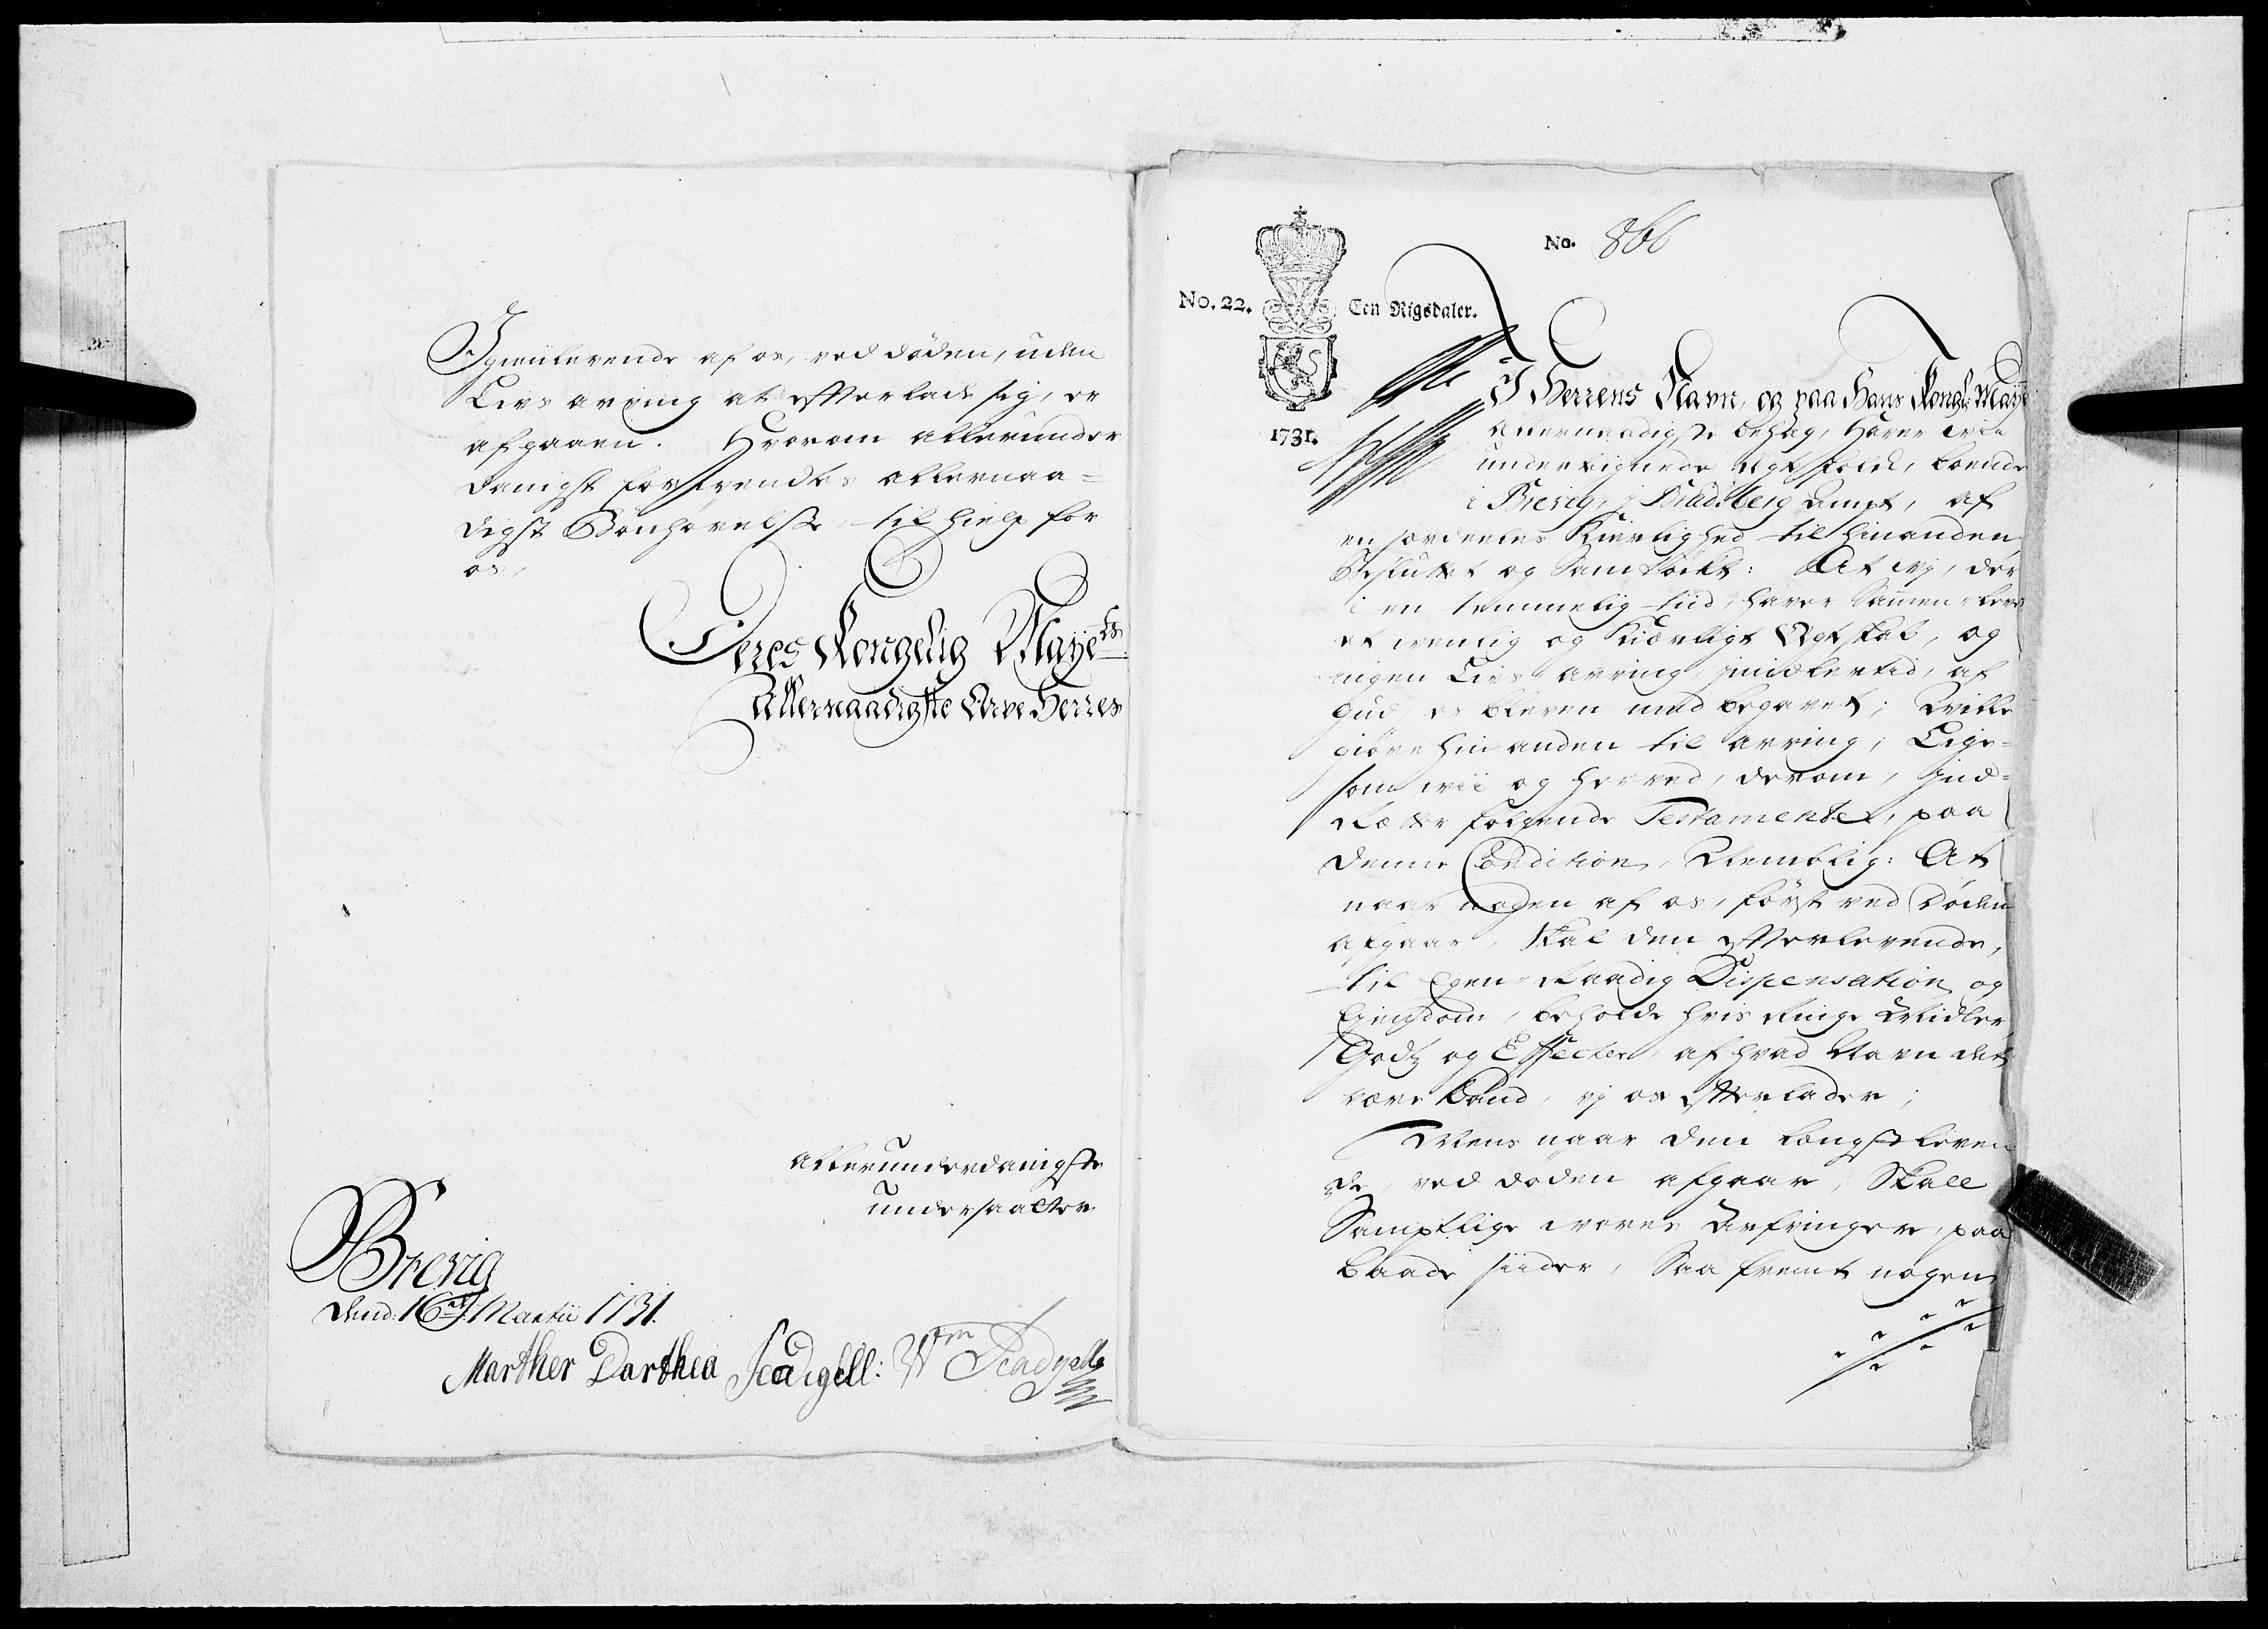 Igienlevende af os, ved döden, uden
Livs arving at efterlade sig, er
afgaaen. Hvorom allerunder
danigst forventes allernaa=
digst Bönhörelse, til hielp for
os,
Eeres Kongelig Mayets
Allernaadigste Arve Herres
allerunderdanigste
undersaatter
Brevig
dend: 16de Martii 1731.
Marther Darthea Seadgell: Wm Seadgell
No. 866
No. 22.
Een Rigsdaler.
1731.
I Herrens Navn, og paa Hans Kongl: May
allernaadigste behag, haver wii
undertegnede Egte folck, boende
i Brevig, i Bradsberg Ampt, af
en sordeeles Kierlighed til hinanden
Besluttet og Samtöckt: At wj, der
i en temmelig tiid, haver Sammen levet
et wenlig og Kierligt Egteskab, og
ingen Livs arving, imidlertid, af
Gud er bleven med begavet; Wille
giöre hin anden til arving; Lige=
som wii og herved, derom, Ind=
Retter fölgende Testamente, paa
denne Condition, Nemblig: At
naar nogen af os, först ved Döden
afgaar, Skal den efterlevende,
til Egen Raadig Dispensation og
Eyendom, beholde hvis Ringe Midler
Godtz og Effecter, af hvad Navn det
være Kand, vj os efterlader;
Mens naar den længst leven
de, ved döden afgaar, Skall
Samptlige wores Arfvinger, paa
baade siider, Saa fremt nogen